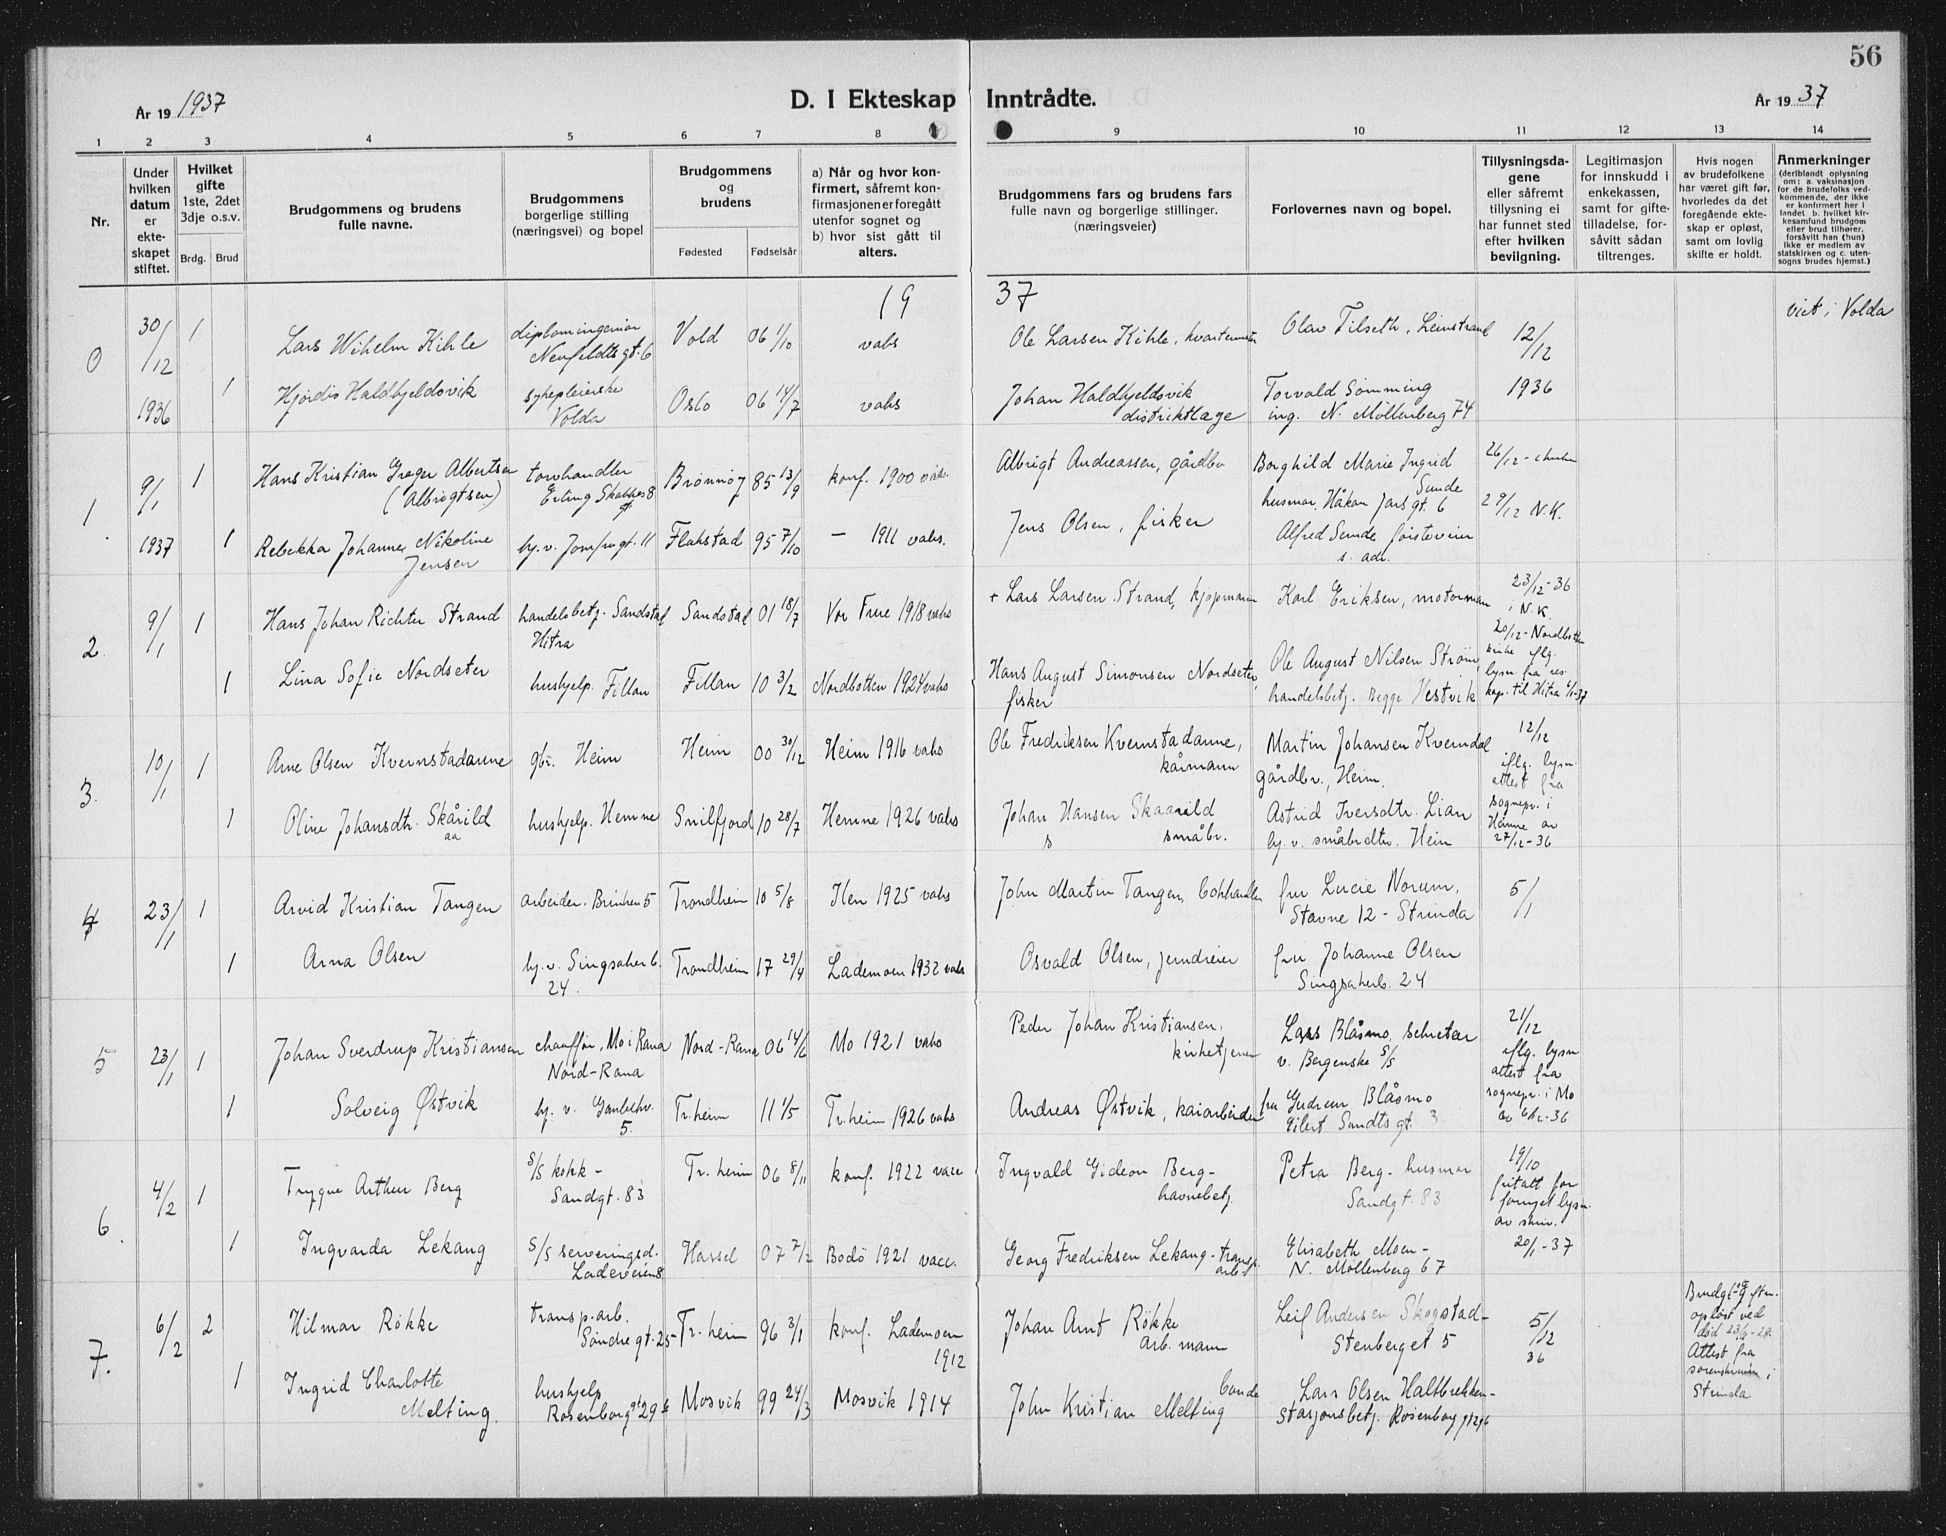 56
År 19 1937
D. I Ekteskap Inntrådte.
År 19 37
1 2 3 4 5 6 7 8 9 10 11 12 13 14
Nr.
Under hvilken datum er ekteskapet stiftet.
Hvilket gifte 1ste, 2det 3dje o.s.v.
Brdg. Brud
Brudgommens og brudens
fulle navne.
Brudgommens
borgerlige stilling
(næringsvei) og bopel
Brudgommens
og
brudens
Fødested Fødselsår
a) Når og hvor kon-
firmert, såfremt kon-
firmasjonen er foregått
utenfor sognet og
b) hvor sist gått til
alters.
Brudgommens fars og brudens fars
fulle navn og borgerlige stillinger.
(næringsveier)
Forlovernes navn og bopel.
Tillysningsda-
gene
eller såfremt
tillysning ei
har funnet sted
efter hvilken
bevilgning.
Legitimasjon
for innskudd i
enkekassen,
samt for gifte-
tilladelse, for-
såvitt sådan
tiltrenges.
Hvis nogen
av brudefolkene
har været gift før,
hvorledes da det
foregående ekte-
skap er opløst,
samt om lovlig
skifte er holdt.
Anmerkninger
(deriblandt oplysning
om: a. vaksinasjon
for de brudefolks ved-
kommende, der ikke
er konfirmert her i
landet. b. hvilket kir-
kesamfund brudgom
eller brud tilhører,
forsåvitt han (hun)
ikke er medlem av
statskirken og c. uten-
sogns brudes hjemst.)
19 37
0 30/12 1936 1 Lars Wihelm Kihle diplomingeniør Neufeldts gt. 6 Vold 06 1/10 vaks Ole Larsen Kihle, Olav Tilseth, Leinstrand 12/12 1936 viet i Volda
1 Hjördis Haldhjeldsvik sykepleierske Volda Oslo 06 14/7 vaks Johan Haldhjeldsvik distriktlæge Torvald Sömming ing. N. Möllenberg 74
1 9/1 1937 1 Hans Kristian Greger Albertsen (Albrigtsen) Erling Skakkes 8 gt Brönnöy 85 13/9 konf. 1900 vak. Albrigt Andreassen, gårdbr Borghild Marie Ingrid Sunde husmor Håkon Jarls gt. 6 26/12 29/12 N.K.
1 Rebekka Johanne Nikoline Jensen hj. v. Jomfrugt. 11 Flakstad 95 7/10 – 1911 vaks. Jens Olsen, fisker Alfred Sunde s. adr.
2. 9/1 1 Hans Johan Richter Strand handelsbetj. Sandstad Hitra Sandstad 01 18/7 Vor Frue 1918 vaks + Lars Larsen Strand, kjøpmann Karl Eriksen, motormann 23/12-36 i N.K. 20/12-Nordbotten kirke iflg. lysn. fra res. kap. til Hitra 6/1-37
1 Lina Sofie Nordseter hushjelp. Fillan Fillan 10 3/2 Nordbotten 1924 vaks Hans August Simonsen Nordseter, fisker Ole August Nilsen Ström, handelsbetj. Begge Hestvik
3. 10/1 1 Arne Olsen Kvernstadanne gbr. Heim Heim 00 30/12 Heim 1916 vaks Ole Fredriksen Kvernstadanne, kårmann Martin Johansen Kverndal gårdbr., Heim. 12/12 iflg. lysn. attest fra sognepr. i Hemne av 27/12-36
1 Oline Johansdtr. Skårild aa hushjelp. Hemne Snilfjord 10 28/7 Hemne 1926 vaks Johan Hansen Skaarild s småbr. Astrid Iversdtr. Lian hj. v. småbrdtr. Heim
4 23/1 1 Arvid Kristian Tangen arbeider. Brinken 5 Trondheim 10 5/8 Ilen 1925 vaks John Martin Tangen, bokhandler fru Lucie Norum, Stavne 12 - Strinda 5/1
1 Arna Olsen hj. v. Singsakerb. 24. Trondheim 17 29/4 Lademoen 1932 vaks Osvald Olsen, jerndreier fru Johanne Olsen Singsakerb. 24
5 23/1 1 Johan Sverdrup Kristiansen chauffør, Mo i Rana Nord-Rana Nord-Rana 06 14/6 Mo 1921 vaks Peder Johan Kristiansen, kirketjener Lars Blåsmo, sekretær v. Bergenske S/S 21/12 iflg. lysn attest fra sognepr. i Mo
1 Solveig Østvik hj. v. 5. Tr.heim 11 1/5 Tr.heim 1926 vaks Andreas Østvik, kaiarbeider fru Gudrun Blåsmo Gilert Sundts gt. 3
6. 4/2 1 Trygve Arthur Berg S/S kokk - Sandgt. 83 Tr. heim 06 8/11 konf. 1922 vacc Ingvald Gideon Berg - havnebetj. Petra Berg - husmor Sandgt. 83 19/10 fritatt for fornyet lysn. av skriv. 20/1-37
1 Ingvarda Lekang S/S serveringsd. Ladeveien 8 Hassel 07 7/12 Bodö 1921 vacc. Georg Fredriksen Lekang - transp. arb. Elisabeth Moen - N. Möllenberg 67
7. 6/2 2 Hilmar Rökke transp.arb. Søndre gt. 25 Tr. heim 96 3/1 konf. Lademoen 1912 Johan Arnt Rökke arb. mann Leif Andersen Skogstad - Stenberget 5 5/12 36 opløst ved död Attest fra sorenskriveren i Strinda
1 Ingrid Charlotte Melting. hushjelp Rosenborg gt 29 b Mosvik 99 24/3 Mosvik 1914 John Kristian Melting bonde Lars Olsen Haltbrekken - stasjonsbetj. Rosenborg gt 29b